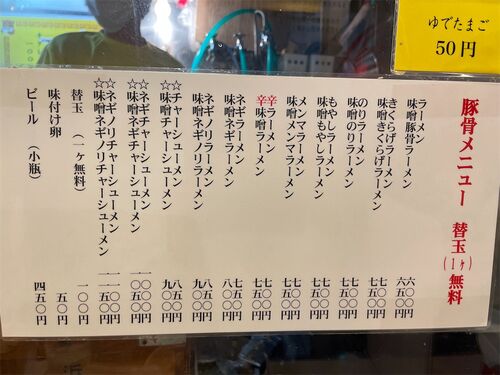 ゆでたまご
50円
豚骨メニュー 替玉(1ヶ)無料
ラーメン 六〇〇円
味噌豚骨ラーメン 六五〇円
きくらげラーメン 七〇〇円
味噌きくらげラーメン 七五〇円
のりラーメン 七〇〇円
味噌のりラーメン 七五〇円
もやしラーメン 七〇〇円
味噌もやしラーメン 七五〇円
メンマラーメン 七〇〇円
味噌メンマラーメン 七五〇円
辛ラーメン 七〇〇円
辛味噌ラーメン 七五〇円
ネギラーメン 七五〇円
味噌ネギラーメン 八〇〇円
ネギノリラーメン 八五〇円
味噌ネギノリラーメン 九〇〇円
☆チャーシューメン 八五〇円
☆味噌チャーシューメン 九〇〇円
☆ネギチャーシューメン 一〇〇〇円
☆味噌ネギチャーシューメン 一〇五〇円
☆ネギノリチャーシューメン 一一〇〇円
☆味噌ネギノリチャーシューメン 一一五〇円
替玉 (一ヶ無料) 一〇〇円
味付け卵 五〇円
ビール (小瓶) 四五〇円